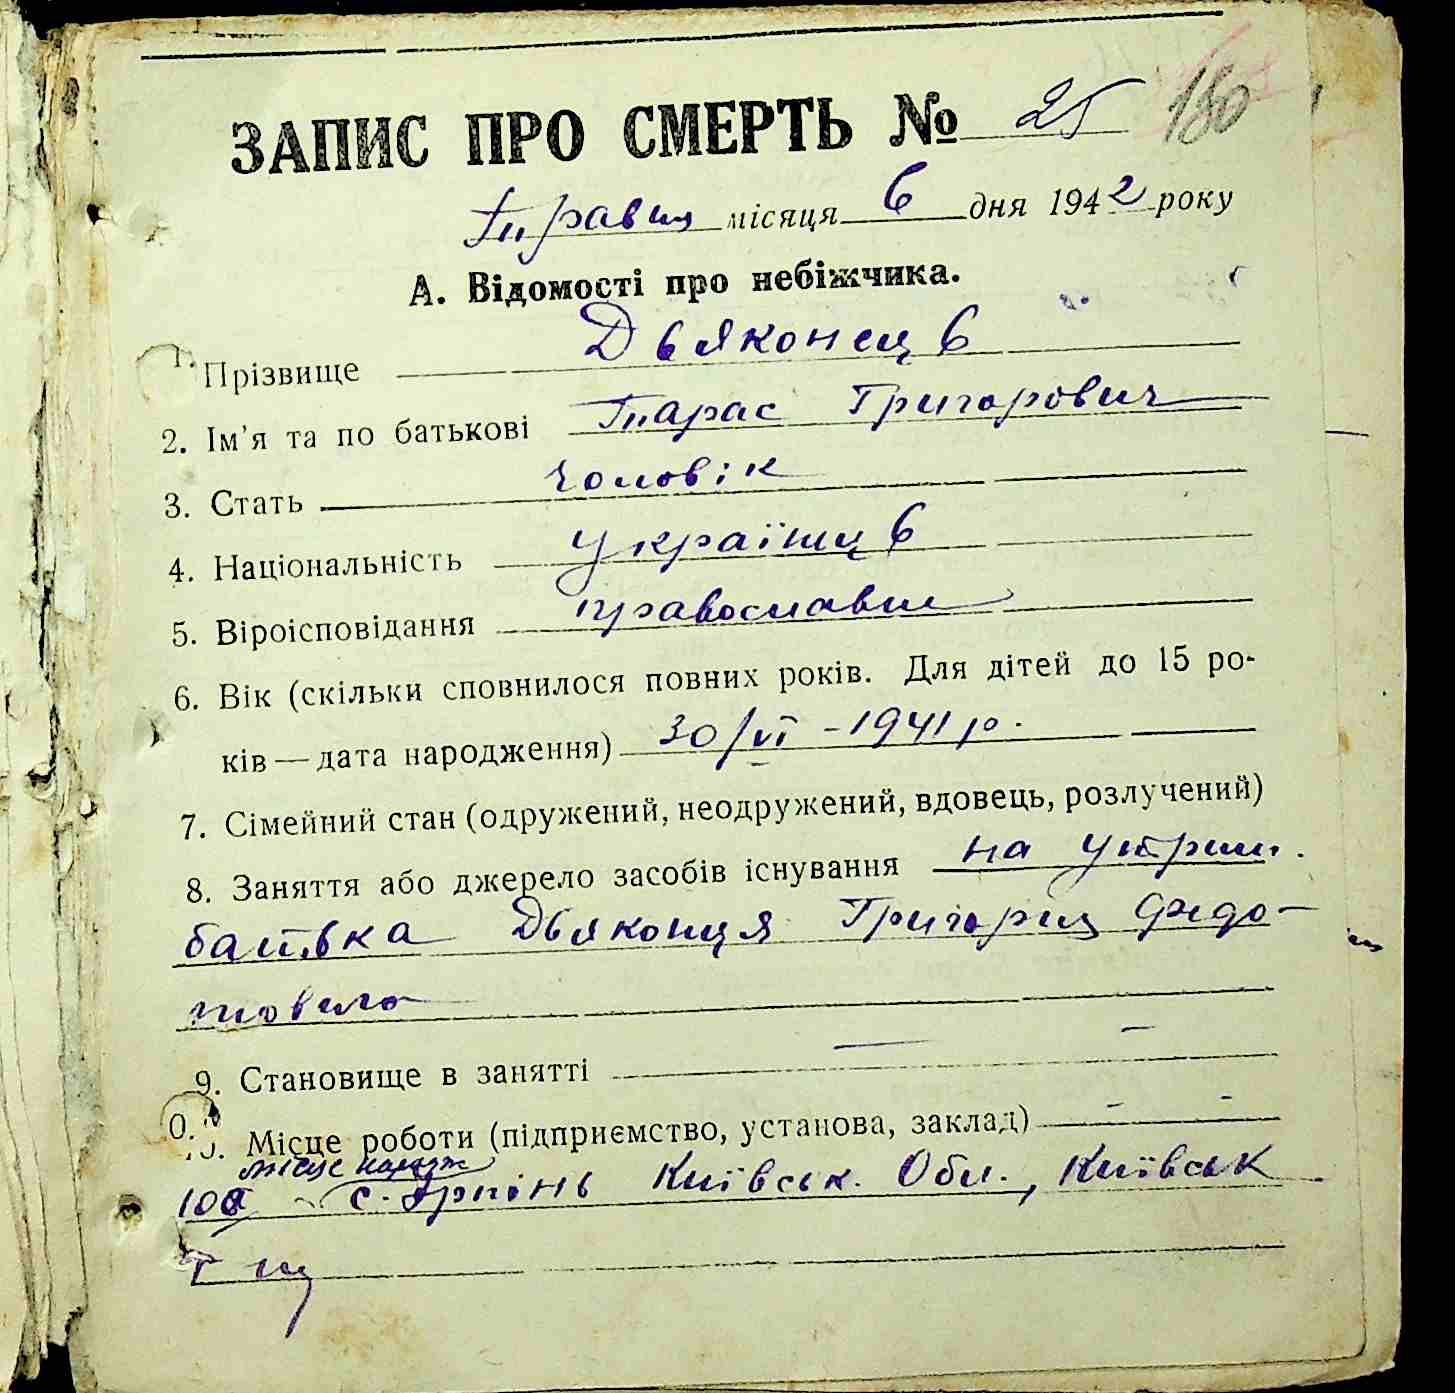 ЗАПИС ПРО СМЕРТЬ № 25 180
травня місяця 6 дня 1942 року
А. Відомості про небіжчика.
1. Прізвище Дьяконець
2. Ім'я та по батькові Тарас Григорович
3. Стать чоловік
4. Національність українць
5. Віроісповідання православн
6. Вік (скільки сповнилося повних років. Для дітей до 15 ро-
ків — дата народження) 30/VI - 1941 р.
7. Сімейний стан (одружений, неодружений, вдовець, розлучений)
8. Заняття або джерело засобів існування на утрим.
батька Дьяконця Григорія Федо-
товича
9. Становище в занятті —
10. Місце роботи (підприємство, установа, заклад) - -
місце народж
10а с. Ірпінь Київськ. Обл., Київськ